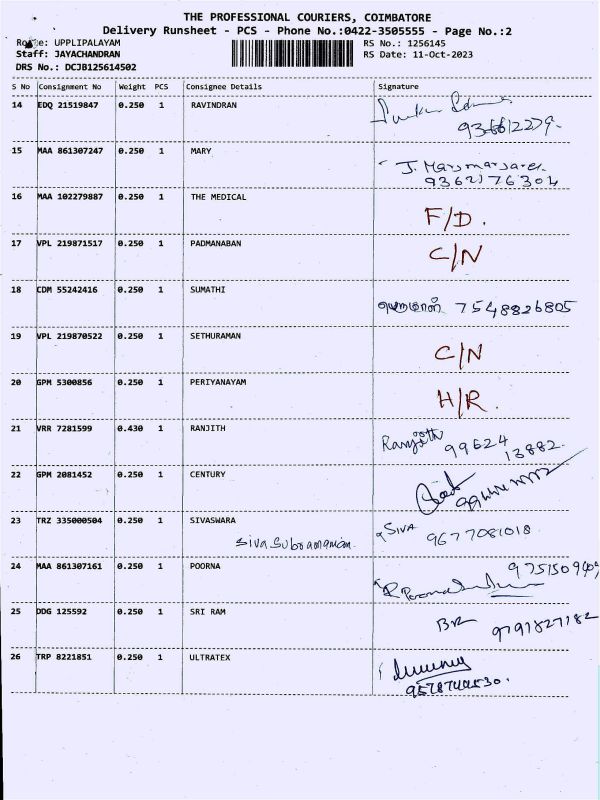 THE PROFESSIONAL COURIERS, COIMBATORE
Delivery Runsheet - PCS - Phone No.:0422-3505555 - Page No.:2
Route: UPPLIPALAYAM RS No.: 1256145
Staff: JAYACHANDRAN RS Date: 11-Oct-2023
DRS No.: DCJB125614502
S No Consignment No Weight PCS Consignee Details Signature
14 EDQ 21519847 0.250 1 RAVINDRAN
15 MAA 861307247 0.250 1 MARY J. Mary
9362176304
16 MAA 102279887 0.250 1 THE MEDICAL F/D.
17 VPL 219871517 0.250 1 PADMANABAN C/N
18 CDM 55242416 0.250 1 SUMATHI 7548826805
19 VPL 219870522 0.250 1 SETHURAMAN C/N
20 GPM 5300856 0.250 1 PERIYANAYAM H/R.
21 VRR 7281599 0.430 1 RANJITH Ranjith 99624
13882.
22 GPM 2081452 0.250 1 CENTURY
23 TRZ 335000504 0.250 1 SIVASWARA SIVA 9677081018
Siva Subramaniam.
24 MAA 861307161 0.250 1 POORNA
25 DDG 125592 0.250 1 SRI RAM 9791827182
26 TRP 8221851 0.250 1 ULTRATEX